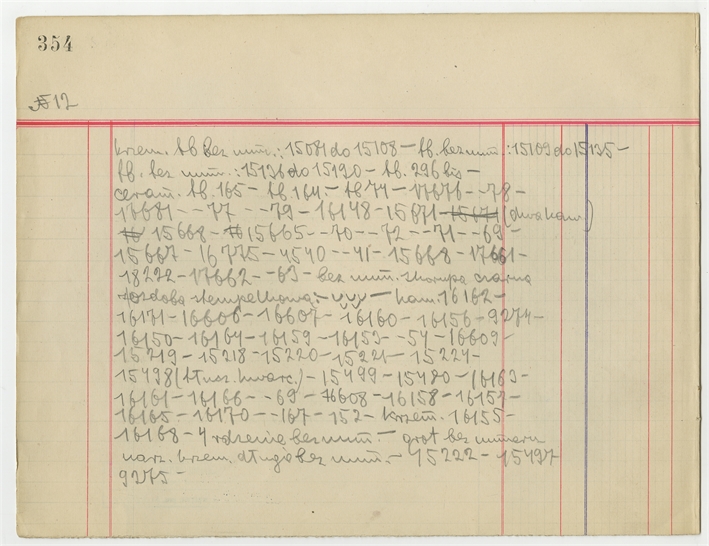 354
№ 12
krzem. tb bez num.: 15081 do 15108 – tb. bez num.: 15109 do 15135 –
tb. bez num.: 15136 do 15190 – tb. 296 bis –
ceram. tb. 165 – tb 164 – tb 74 – 17676 – -78 –
17681 – -77 – -79 – 16148 – 15671 – (dwa kam.)
15668 – 15665 – -70 – -72 – -71 – -69 –
15667 – 16775 – 4540 – -41 – 15668 – 17661 –
18222 – 17662 – -63 – bez num. skorupa czarna
ozdoba stempelkowa: vvv – kam. 16162 –
16171 – 16606 – 16607 – 16160 – 16156 – 9274 –
16150 – 16164 – 16159 – 16153 – -54 – 16609 –
15219 – 15218 – 15220 – 15221 – 15224 –
15498 (tłucz. kwarc.) – 15499 – 15480 – 16163 –
16161 – 16166 – -69 – 16608 – 16158 – 16152 –
16165 – 16170 – -167 – 152 – krzem. 16155 –
16168 – 4 rdzenie bez num. – grot bez numeru
narz. krzem. długie bez num. – 15222 – 15497
9275 –